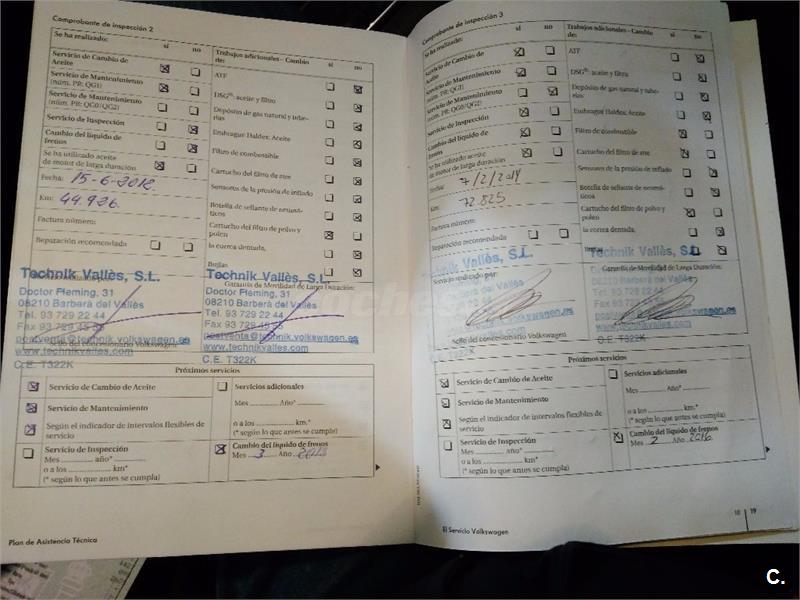 Comprobante de inspección 2
Se ha realizado: sí no
Servicio de Cambio de
Aceite
Servicio de Mantenimiento
(núm. PR: QG1)
Servicio de Mantenimiento
(núm. PR: QG0/QG2)
Servicio de Inspección
Cambio del líquido de
frenos
Se ha utilizado aceite
de motor de larga duración
Fecha: 15-6-2012.
Km: 44.926
Factura número:
Reparación recomendada
Trabajos adicionales - Cambio sí no
de:
ATF
DSG: aceite y filtro
Depósito de gas natural y tube-
rías
Embrague Haldex: Aceite
Filtro de combustible
Cartucho del filtro de aire
Sensores de la presión de inflado
Botella de sellante de neumá-
ticos
Cartucho del filtro de polvo y
polen
la correa dentada,
Bujías
Garantía de Movilidad de Larga Duración:
Technik Vallès, S.L.
Doctor Fleming, 31
08210 Barberà del Vallès
Tel. 93 729 22 44
Fax 93 729
postventa@technik.volkswagen.es
www.technikvalles.com
C.E. T322K
Technik Vallès, S.L.
Doctor Fleming, 31
08210 Barberà del Vallès
Tel. 93 729 22 44
Fax 93 729
postventa@technik.volkswagen.es
www.technikvalles.com
C.E. T322K
Sello del concesionario Volkswagen
Próximos servicios
Servicio de Cambio de Aceite
Servicio de Mantenimiento
Según el indicador de intervalos flexibles de
servicio
Servicio de Inspección
Mes año*
o a los km*
(* según lo que antes se cumpla)
Servicios adicionales
Mes Año*
o a los km*
(* según lo que antes se cumpla)
Cambio del líquido de frenos
Mes 3 Año 2013
Plan de Asistencia Técnica
Comprobante de inspección 3
Se ha realizado: sí no
Servicio de Cambio de
Aceite
Servicio de Mantenimiento
(núm. PR: QG1)
Servicio de Mantenimiento
(núm. PR: QG0/QG2)
Servicio de Inspección
Cambio del líquido de
frenos
Se ha utilizado aceite
de motor de larga duración
Fecha: 7/2/2014
Km: 72.825
Factura número:
Reparación recomendada
Servicio realizado por:
Trabajos adicionales - Cambio sí no
de:
ATF
DSG: aceite y filtro
Depósito de gas natural y tube-
rías
Embrague Haldex: Aceite
Filtro de combustible
Cartucho del filtro de aire
Sensores de la presión de inflado
Botella de sellante de neumá-
ticos
Cartucho del filtro de polvo y
polen
la correa dentada,
Bujías
Garantía de Movilidad de Larga Duración:
Sello del concesionario Volkswagen
Próximos servicios
Servicio de Cambio de Aceite
Servicio de Mantenimiento
Según el indicador de intervalos flexibles de
servicio
Servicio de Inspección
Mes año*
o a los km*
(* según lo que antes se cumpla)
Servicios adicionales
Mes Año*
o a los km*
(* según lo que antes se cumpla)
Cambio del líquido de frenos
Mes 2 Año 2016
El Servicio Volkswagen
18 | 19
C.